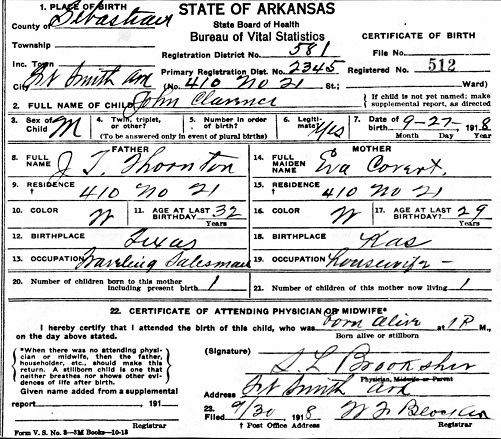 1. PLACE OF BIRTH
County of Sebastian
STATE OF ARKANSAS
State Board of Health
Bureau of Vital Statistics
CERTIFICATE OF BIRTH
Township
Registration District No. 581
File No.
Inc. Town
City Ft Smith Ark
Primary Registration Dist. No. 2345
Registered No. 512
(No. 410 No 21 St.; Ward)
2. FULL NAME OF CHILD John Clarence
{ If child is not yet named; make supplemental report, as directed
3. Sex of Child M
4. Twin, triplet, or other?
5. Number in order of birth?
(To be answered only in event of plural births)
6. Legitimate? Yes
7. Date of birth 9-27- 1918
Month Day Year
FATHER
8. FULL NAME J. T. Thornton
MOTHER
14. FULL MAIDEN NAME Eva Covert.
9. RESIDENCE † 410 No 21
15. RESIDENCE † 410 No 21
10. COLOR W
11. AGE AT LAST BIRTHDAY 32
Years
16. COLOR W
17. AGE AT LAST BIRTHDAY? 29
Years
12. BIRTHPLACE Texas
18. BIRTHPLACE Kas
13. OCCUPATION Traveling Salesman
19. OCCUPATION housewife -
20. Number of children born to this mother including present birth 1
21. Number of children of this mother now living 1
22. CERTIFICATE OF ATTENDING PHYSICIAN OR MIDWIFE*
I hereby certify that I attended the birth of this child, who was born alive at 1 P M.,
on the day above stated.
Born alive or stillborn
{ *When there was no attending physician or midwife, then the father, householder, etc., should make this return. A stillborn child is one that neither breathes nor shows other evidences of life after birth. }
(Signature) S L Brooksher
Physician, Midwife or Parent
Given name added from a supplemental
report 191
Registrar
Address Ft Smith Ark
23. Filed 9/30 1918
Registrar
† Post Office Address
Form V. S. No. 3—3M Books—10-13